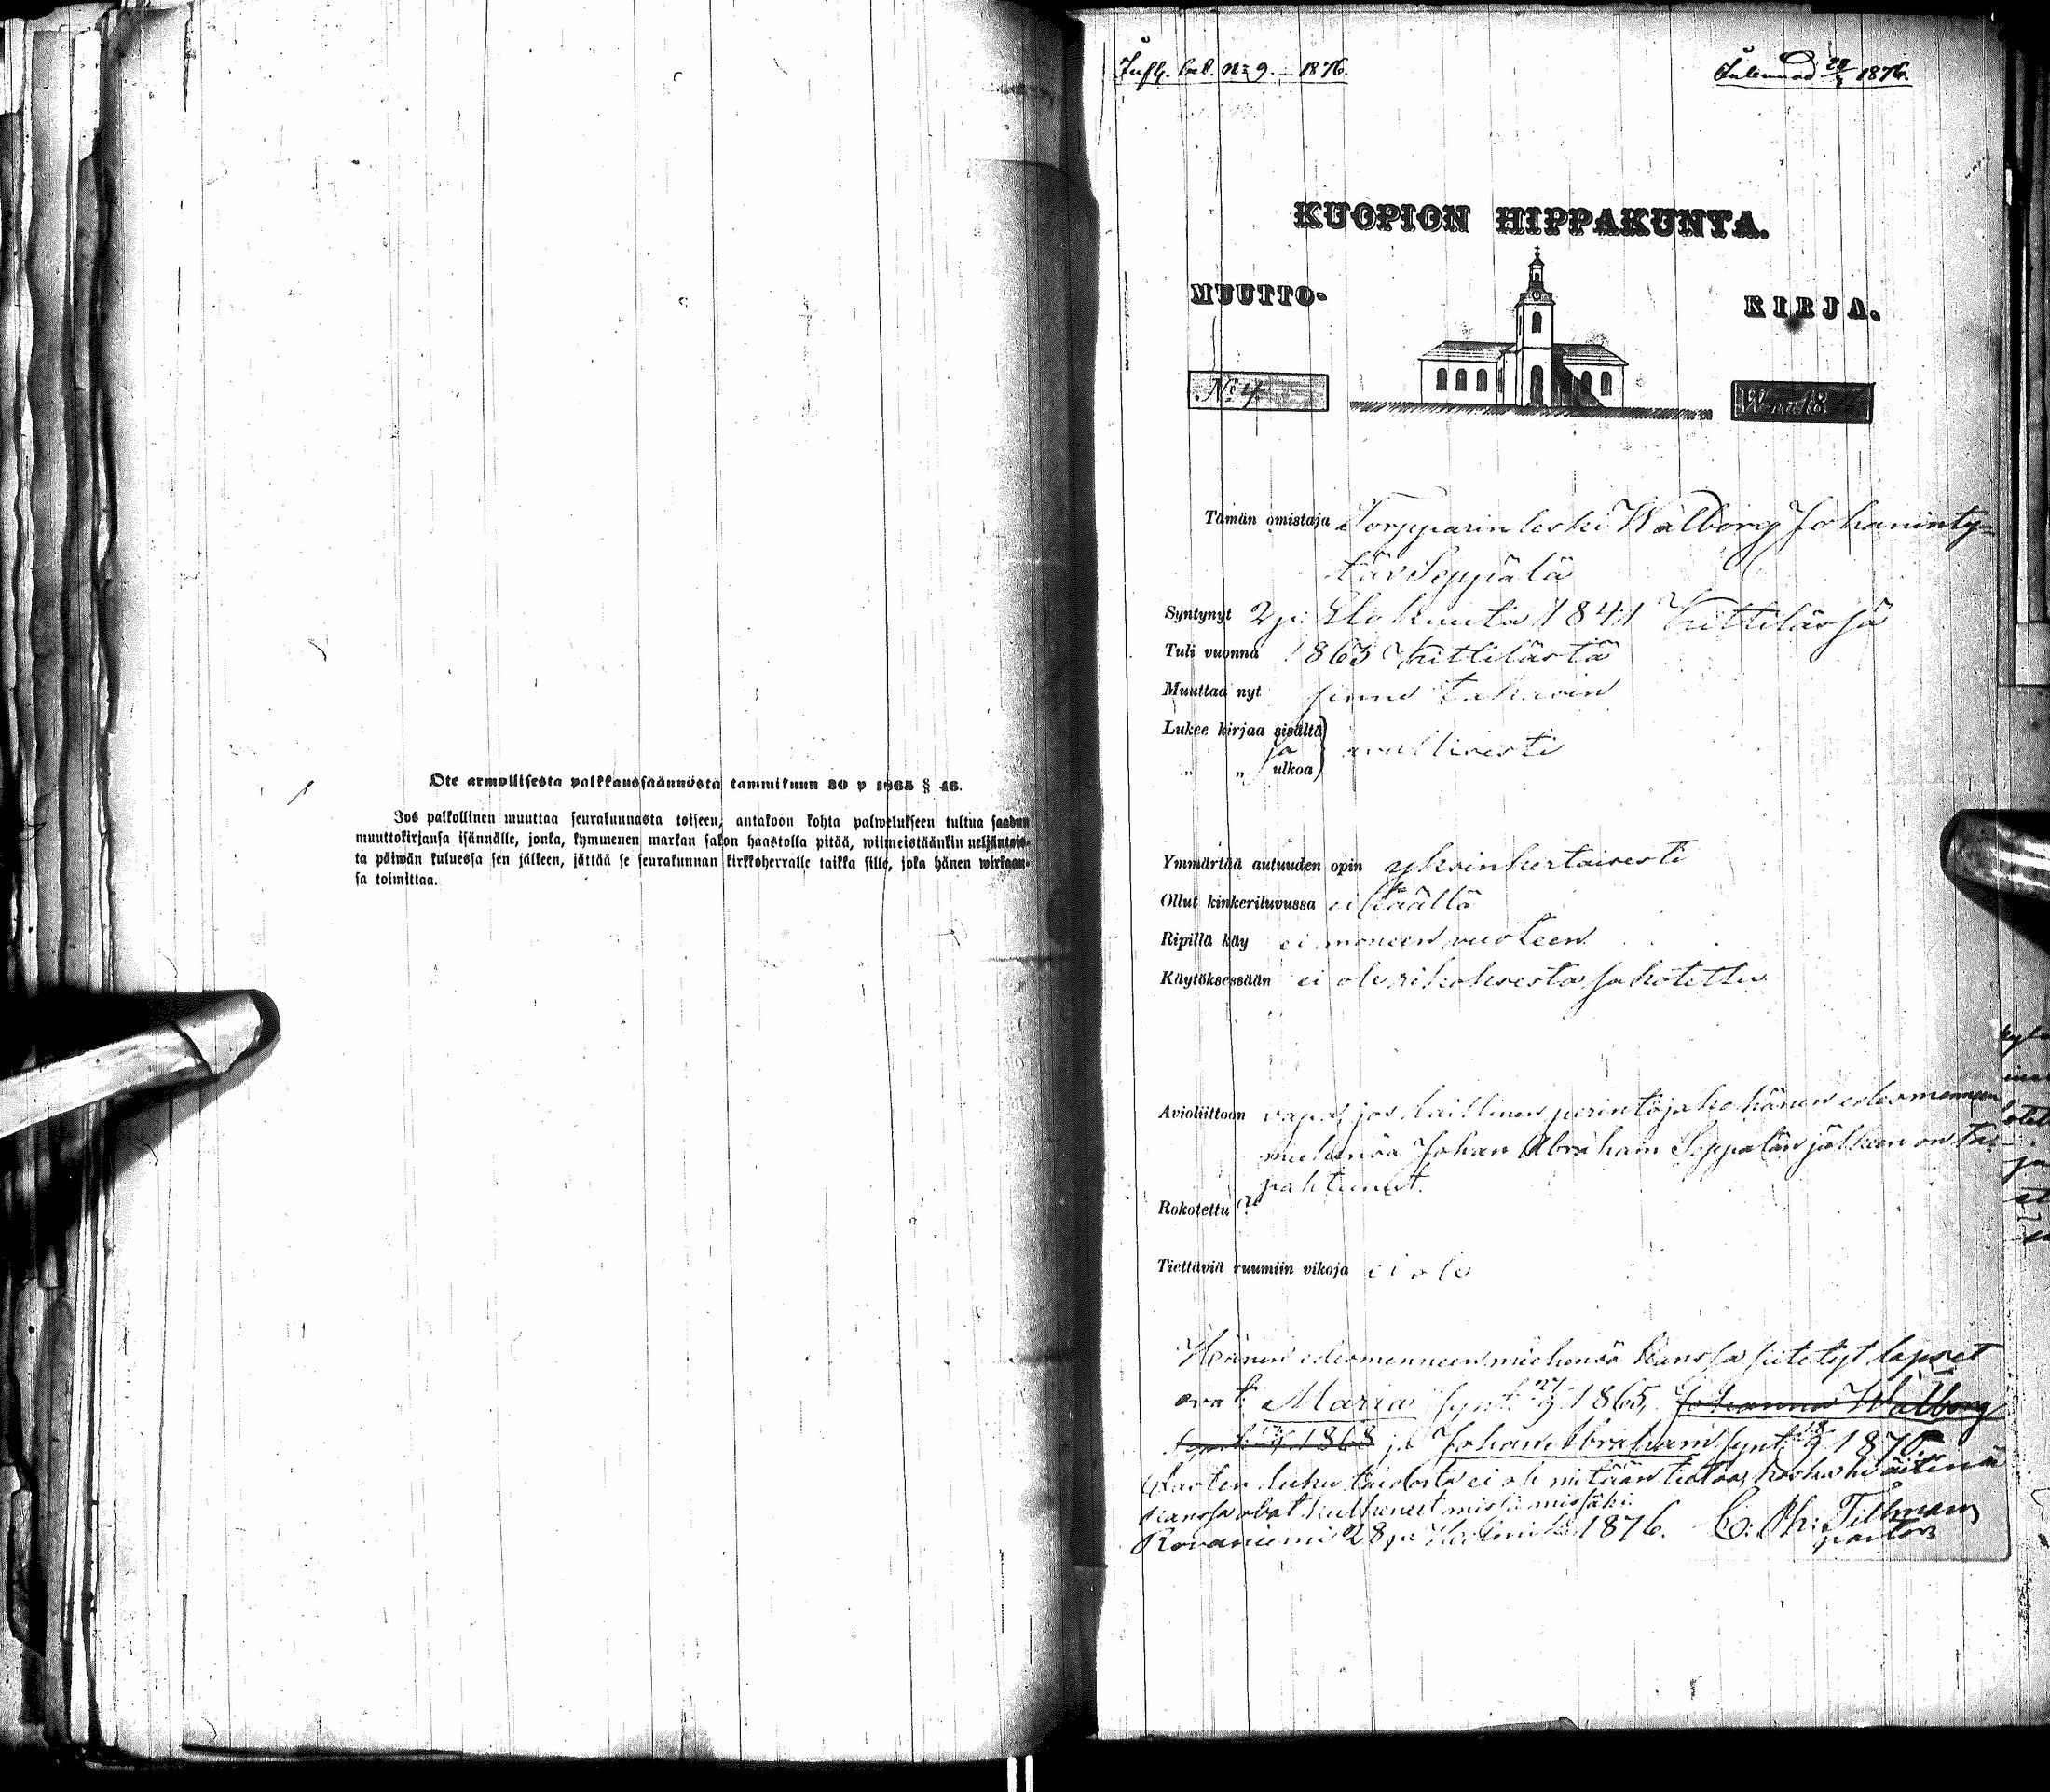 Ote armollisesta palkkaussäännöstä tammikuun 30 p 1865 § 46.
Jos palkollinen muuttaa seurakunnasta toiseen, antakoon kohta palwelukseen tultua saadun
muuttokirjansa isännälle, jonka, kymmenen markan sakon haastolla pitää, wiimeistäänkin neljäntois-
ta päiwän kuluessa sen jälkeen, jättää se seurakunnan kirkkoherralle taikka sille, joka hänen wirkaan-
sa toimittaa.
N:o 9. 1876.
1876.
KUOPION HIPPAKUNTA.
MUUTTO-
KIRJA.
No 4
Wuna 18
Tämän omistaja Torpparin leski Walborg Johaninty-
tär Seppälä
Syntynyt 2 p: Elokuuta 1841 Kittilässä
Tuli vuonna 1863 Kittilästä
Muuttaa nyt sinne takasin
Lukee kirjaa sisältä
ja
„ „ ulkoa
Ymmärtää autuuden opin yksinkertaisesti
Ollut kinkeriluvussa ei täällä
Ripillä käy ei moneen vuoteen
Käytöksessään ei ole rikoksesta sakotettu
Avioliittoon vapa, jos laillinen perintöjako hänen edesmenneen
miehensä Johan Abraham Seppälän jälkeen on ta-
pahtunut.
Rokotettu
Tiettäviä ruumiin vikoja ei ole
Hänen edesmenneen miehensä kanssa siitetyt lapset
ovat: Maria synt. 1865, Johanna Walborg
1868 ja Johan Abraham synt. 1870.
Lasten luku taidosta ei ole mitään tietoa, koska he äitinsä
kanssa ovat kulkeneet missä
Rovaniemi 28 p: 1876. C: Ph: Tillman
pastor